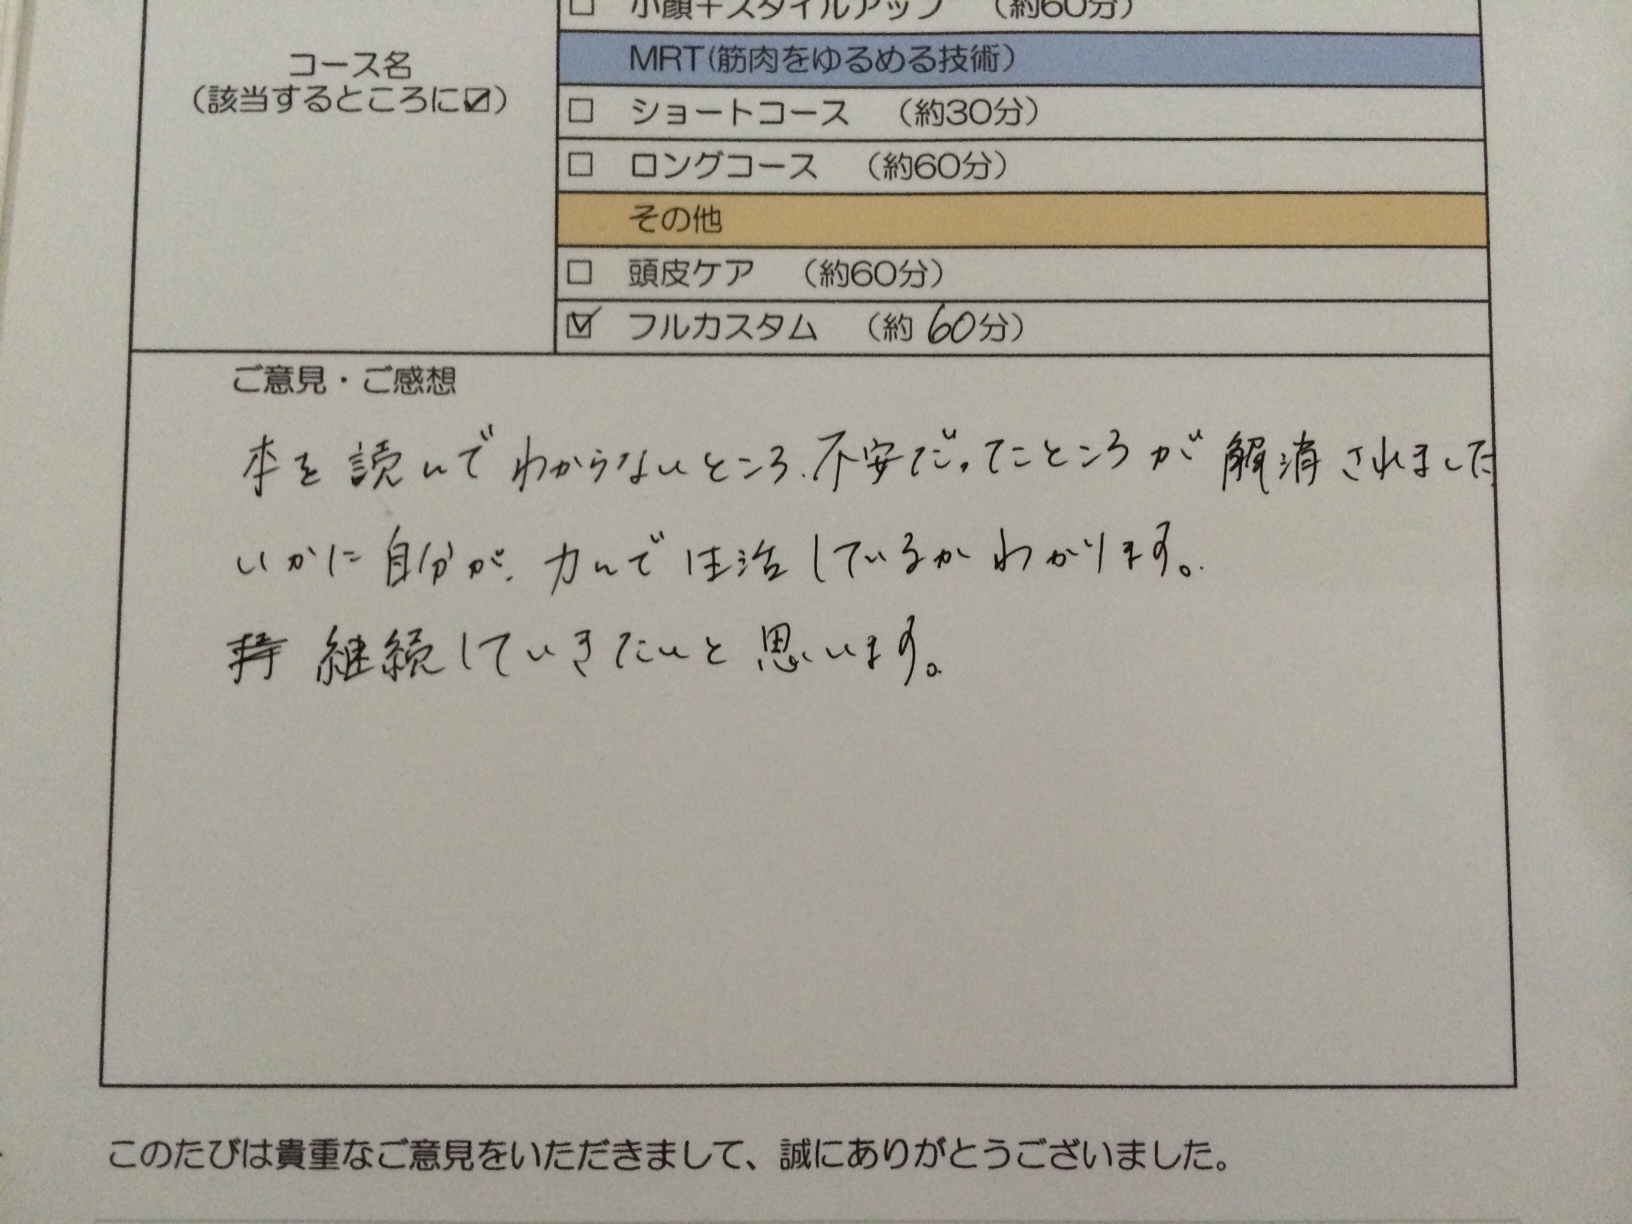 □ 小顔＋スタイルアップ （約60分）
コース名
（該当するところに☑）
MRT(筋肉をゆるめる技術）
□ ショートコース （約30分）
□ ロングコース （約60分）
その他
□ 頭皮ケア （約60分）
☑ フルカスタム （約 60分）
ご意見・ご感想
本を読んでわからないところ、不安だったところが解消されました
いかに自分が、力んで生活しているかわかります。
継続していきたいと思います。
このたびは貴重なご意見をいただきまして、誠にありがとうございました。